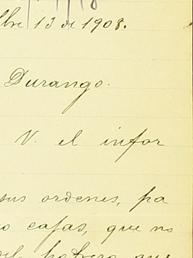 bre 13 de 1908.
Durango.
V. el infor
sus ordenes, pa
o cajas, que no
que